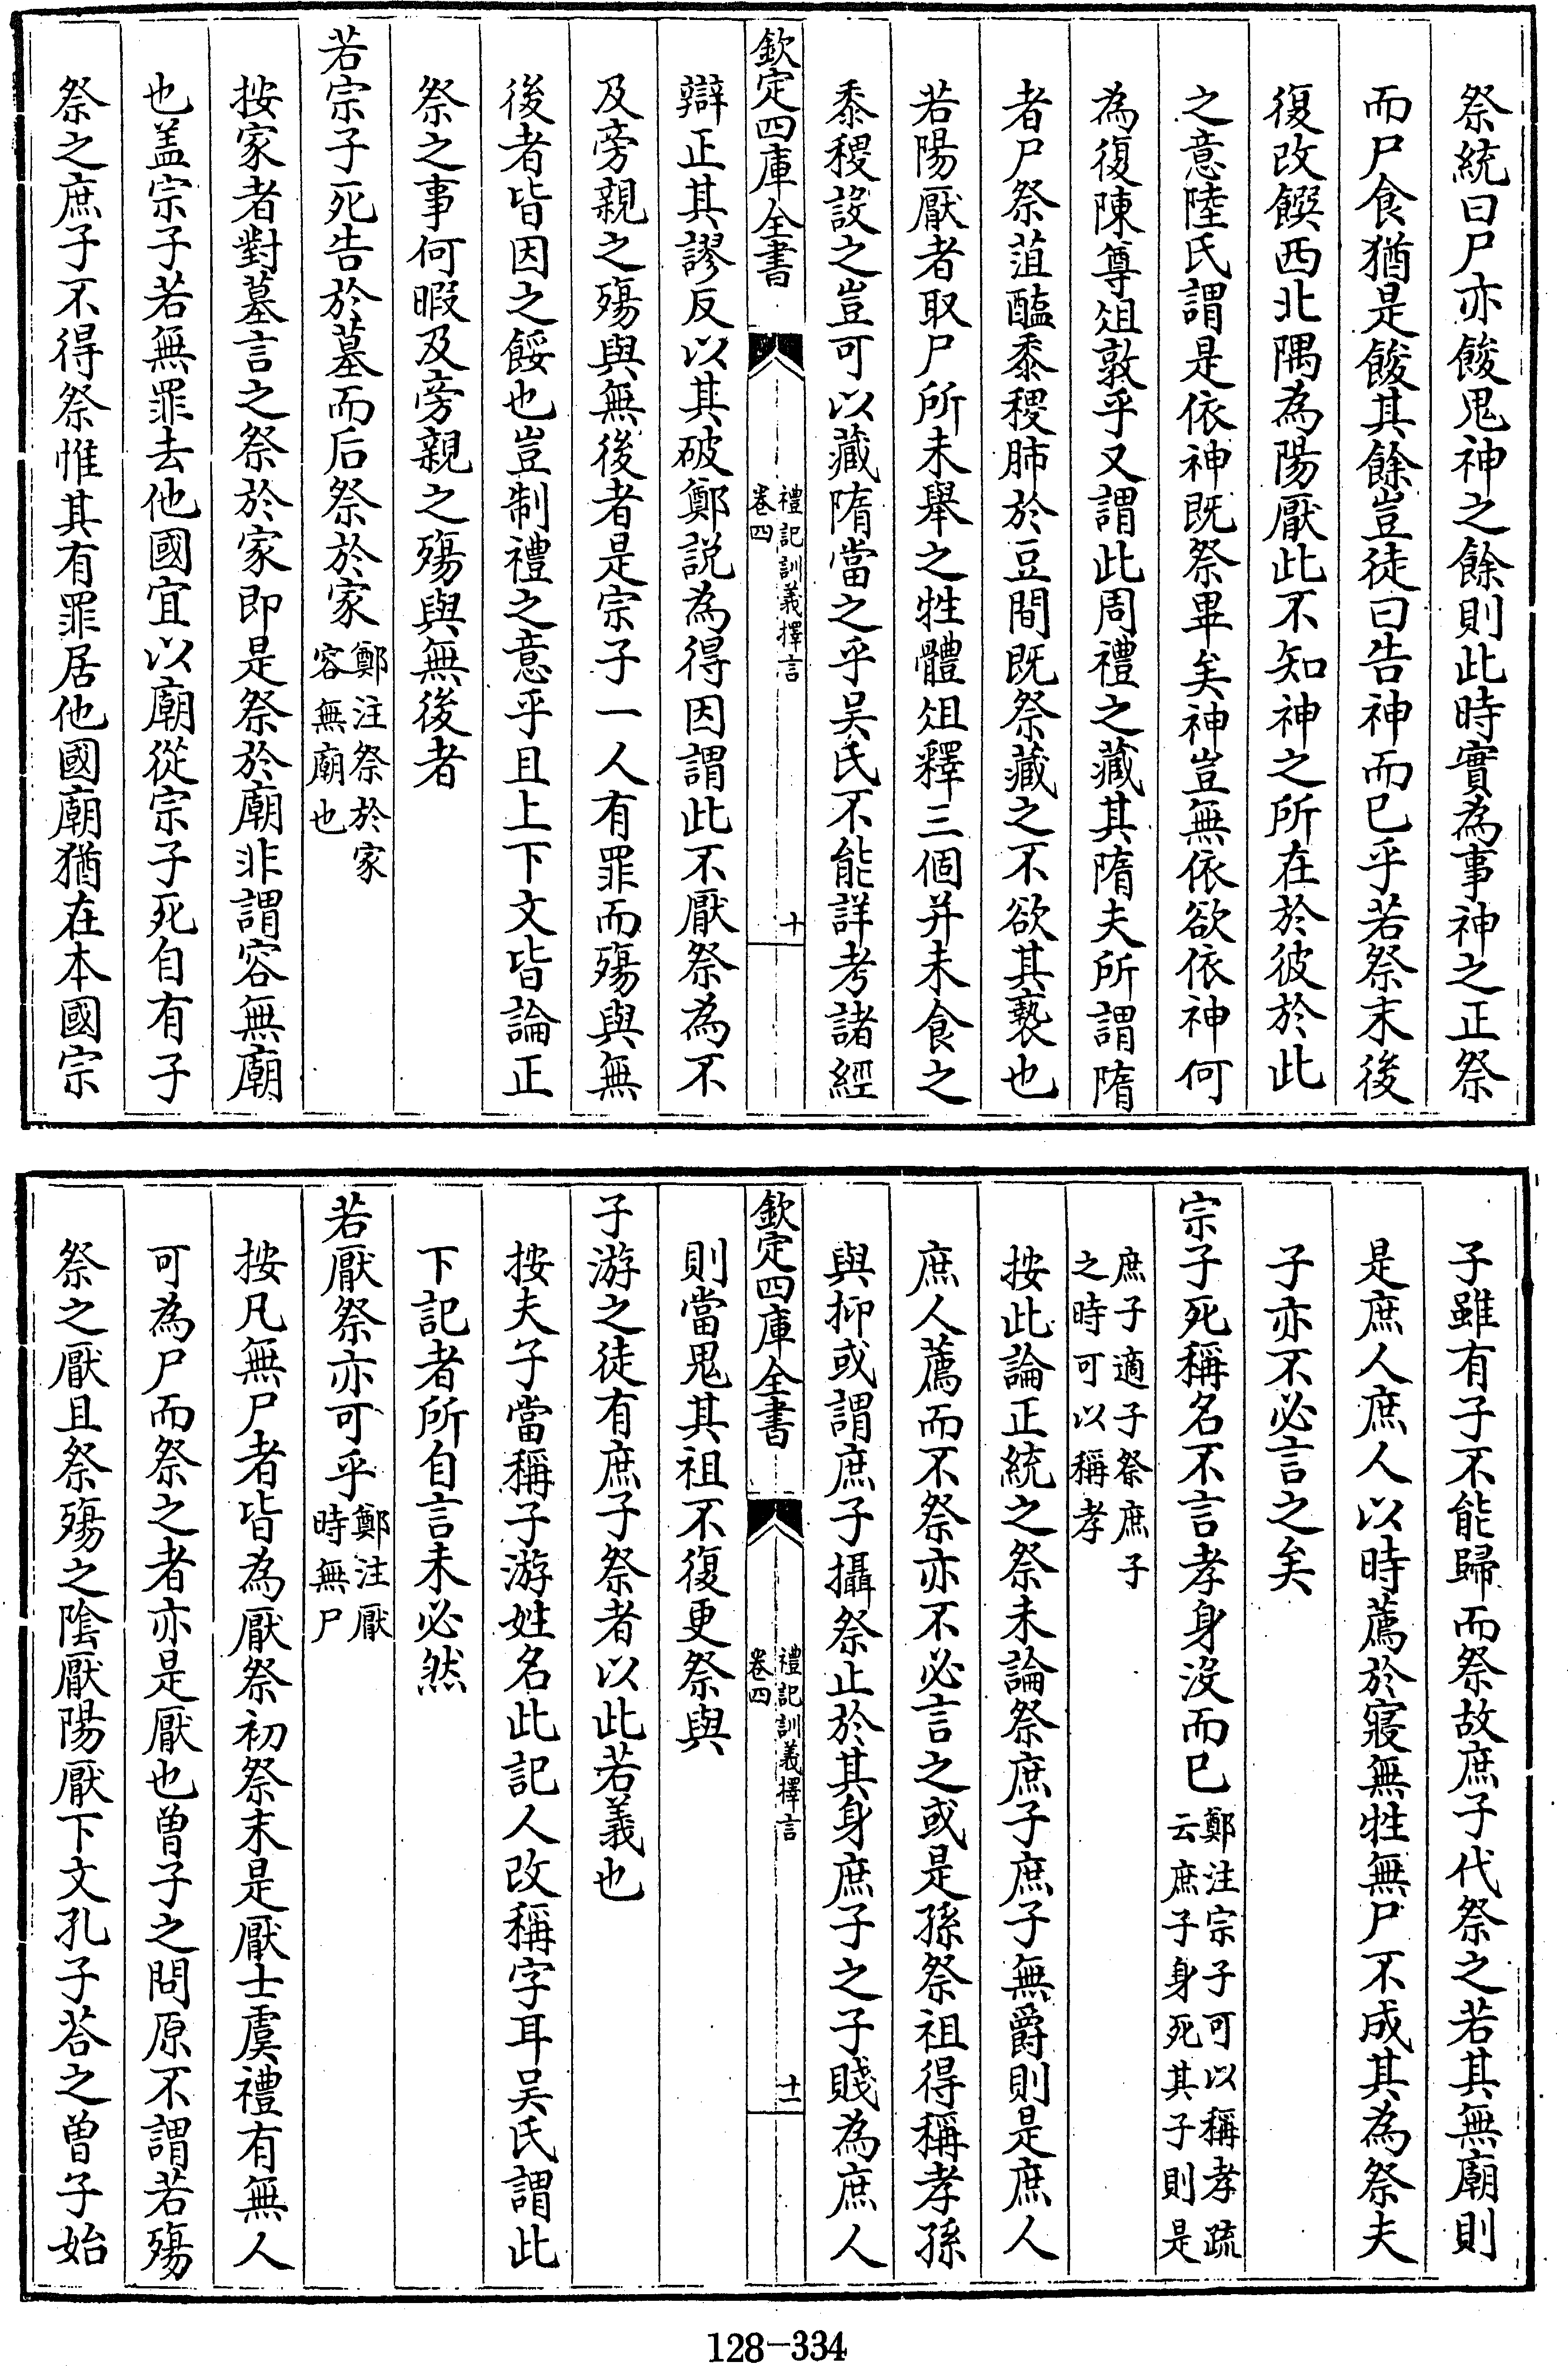 祭統曰尸亦餕鬼神之餘則此時實為事神之正祭
而尸食猶是餕其餘豈徒曰告神而已乎若祭末後
復改饌西北隅為陽厭此不知神之所在於彼於此
之意陸氏謂是依神既祭畢矣神豈無依欲依神何
為復陳尊俎敦乎又謂此周禮之藏其隋夫所謂隋
者尸祭菹醢黍稷肺於豆間既祭藏之不欲其褻也
若陽厭者取尸所未舉之牲體俎釋三個并未食之
黍稷設之豈可以藏隋當之乎吴氏不能詳考諸經
欽定四庫全書
禮記訓義擇言
卷四
十
辯正其謬反以其破鄭説為得因謂此不厭祭為不
及旁親之殤與無後者是宗子一人有罪而殤與無
後者皆因之餒也豈制禮之意乎且上下文皆論正
祭之事何暇及旁親之殤與無後者
若宗子死告於墓而后祭於家鄭注祭於家
容無廟也
按家者對墓言之祭於家即是祭於廟非謂容無廟
也盖宗子若無罪去他國宜以廟從宗子死自有子
祭之庶子不得祭惟其有罪居他國廟猶在本國宗
子雖有子不能歸而祭故庶子代祭之若其無廟則
是庶人庶人以時薦於寢無牲無尸不成其為祭夫
子亦不必言之矣
宗子死稱名不言孝身沒而已鄭注宗子可以稱孝疏
云庶子身死其子則是
庶子適子祭庶子
之時可以稱孝
按此論正統之祭未論祭庶子庶子無爵則是庶人
庶人薦而不祭亦不必言之或是孫祭祖得稱孝孫
與抑或謂庶子攝祭止於其身庶子之子賤為庶人
欽定四庫全書
禮記訓義擇言
卷四
十一
則當鬼其祖不復更祭與
子游之徒有庶子祭者以此若義也
按夫子當稱子游姓名此記人改稱字耳吴氏謂此
下記者所自言未必然
若厭祭亦可乎鄭注厭
時無尸
按凡無尸者皆為厭祭初祭末是厭士虞禮有無人
可為尸而祭之者亦是厭也曽子之問原不謂若殤
祭之厭且祭殤之陰厭陽厭下文孔子荅之曽子始
128-334